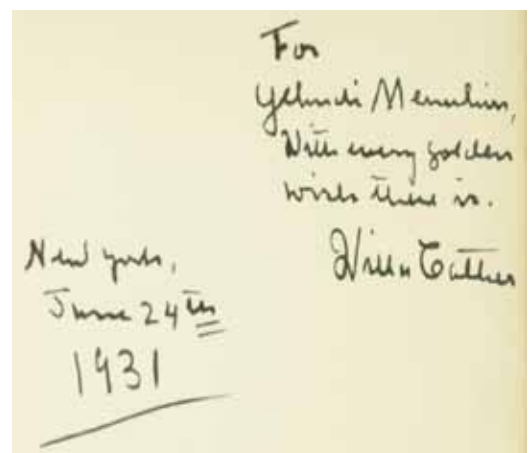 For
Yehudi Menuhin,
With every golden
wish there is.
Willa Cather
New York,
June 24th
1931